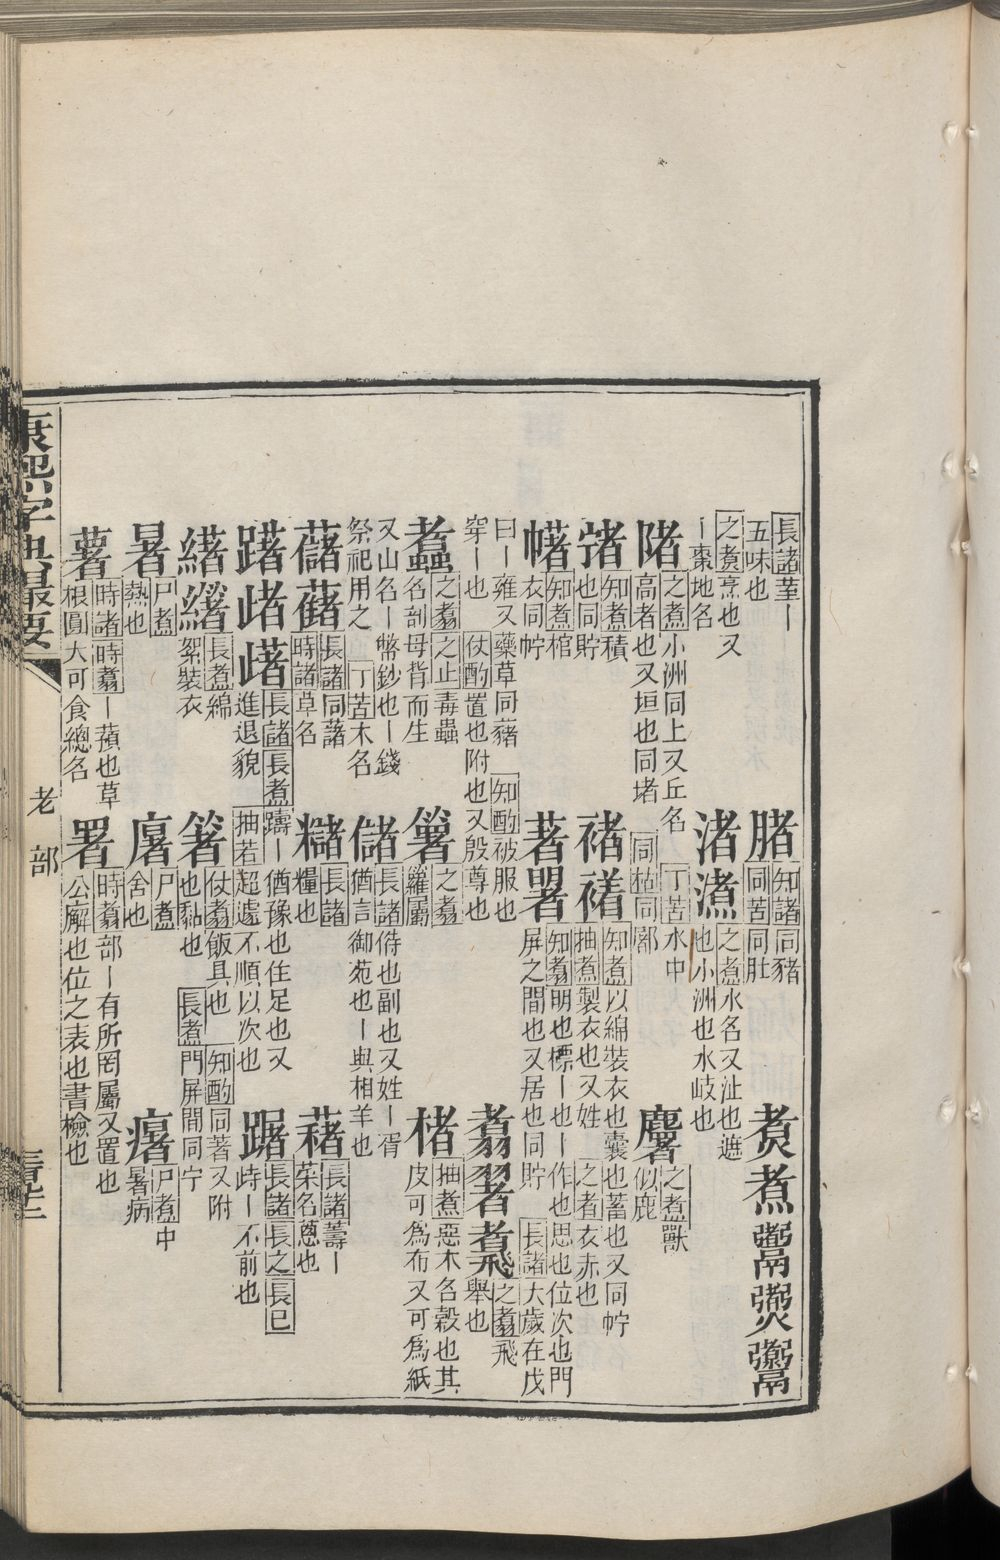 長諸菫丨
五味也
腤知諸同豬
同苦同肚
煑煮鬻
之煑烹也又
丨棗地名
渚㵭之煮水名又沚也遮
也小洲也水岐也
陼之煮小洲同上又丘名
高者也又垣也同堵
丁苦水中
同楛同鄗
麆之煮獸
似鹿
知煮積
也同貯
褚知煮以綿裝衣也囊也蓄也又同㡒
抽煮製衣也又姓之者衣赤也
知煮棺
衣同㡒
著知翥明也標丨也丨作也思也位次也門
屏之間也又居也同貯長諸大歲在戊
曰丨雍又藥草同藸知酌被服也
穿丨也仗酌置也附也又殷尊也
翥之翥飛
舉也
之翥之止毒蟲
名剖母背而生
之翥
羅屬
楮抽煮惡木名穀也其
皮可為布又可為紙
又山名丨幣鈔也丨錢
祭祀用之丁苦木名
儲長諸偫也副也又姓丨胥
猶言御苑也丨與相羊也
長諸同藷
時諸草名
長諸
糧也
長諸蕏丨
菜名蔥也
躇長諸長煮躊丨猶豫也住足也又
進退貌抽若超遽不順以次也
長諸長之長巳
跱丨不前也
緒長煮綿
絮裝衣
箸仗翥飯具也知酌同著又附
也黏也長煮門屏間同宁
暑尸煮
熱也
尸煮
舍也
尸煮中
暑病
薯時諸時翥丨蕷也草
根圓大可食總名
署時翥部丨有所罔屬又置也
公廨也位之表也書檢也
康熙字典撮要
老部